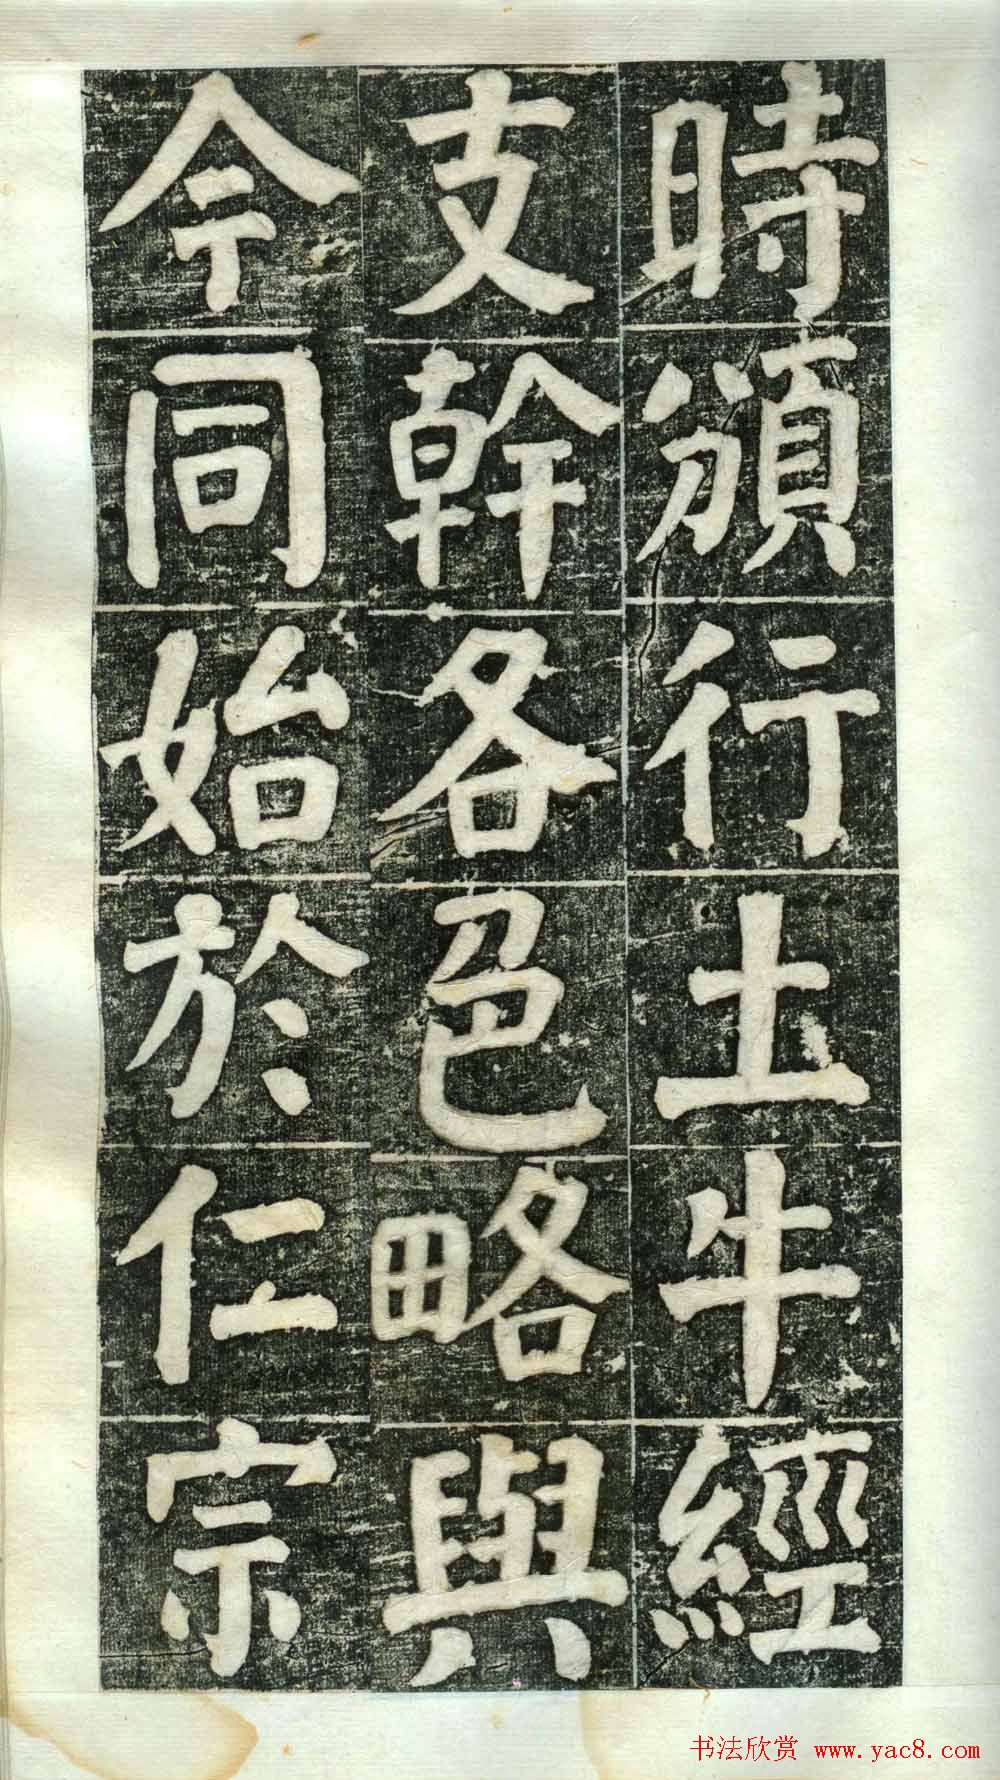 時頒行土牛經
支幹各色略與
今同始於仁宗
书法欣赏 www.yac8.com